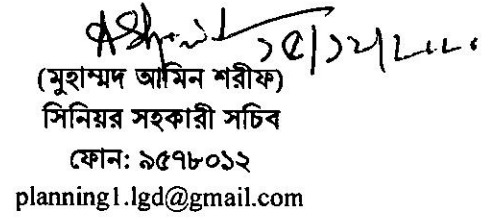 ১৫/১২/২০২০
(মুহাম্মদ আমিন শরীফ)
সিনিয়র সহকারী সচিব
ফোন: ৯৫৭৮০১২
planning1.lgd@gmail.com